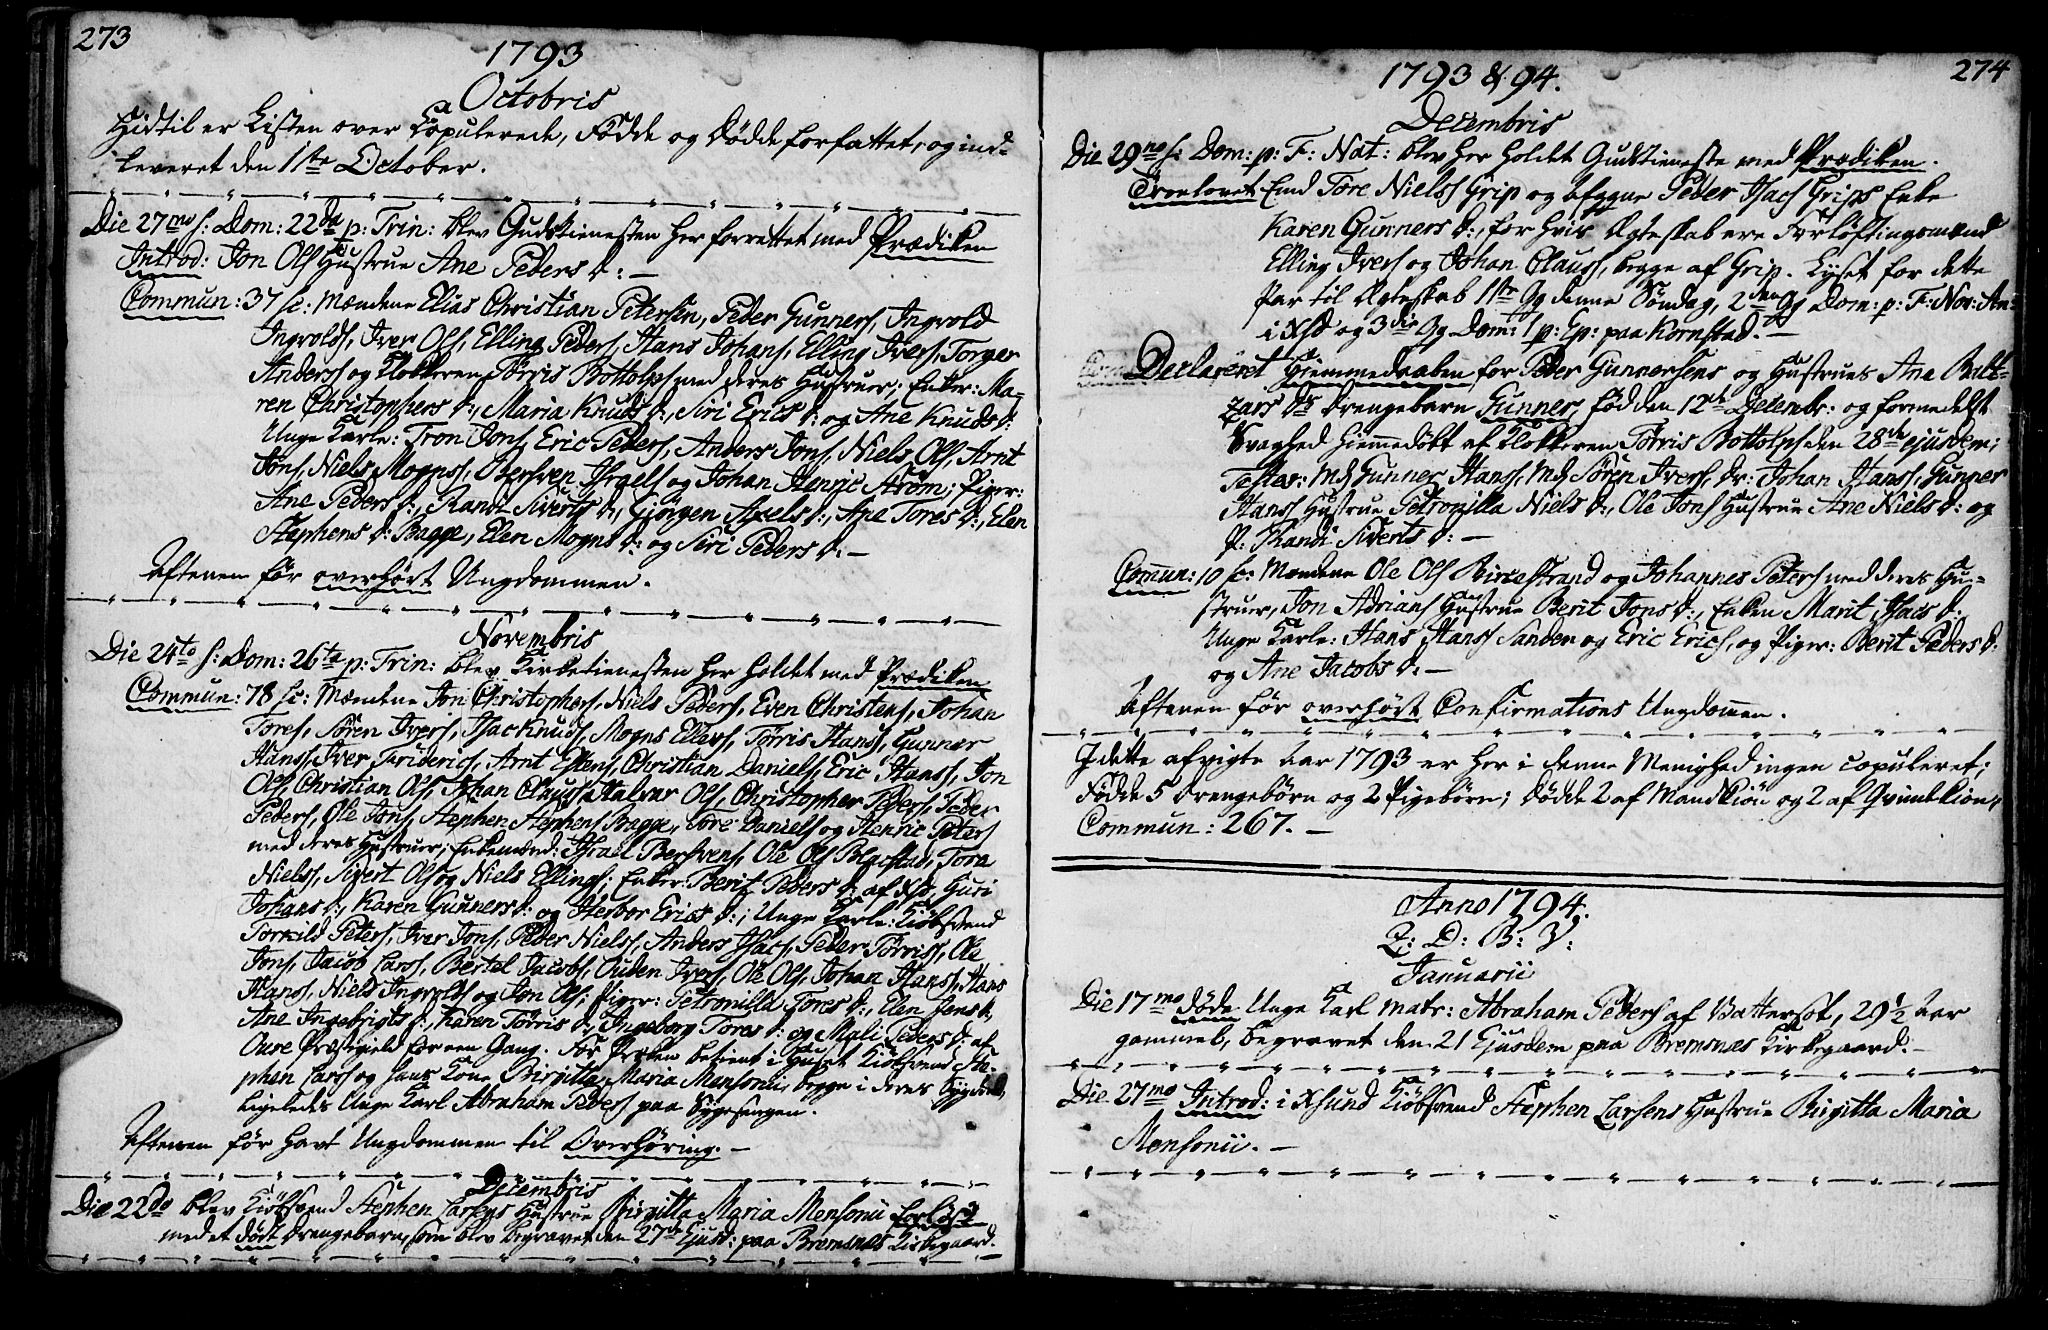 273
1793
Octobris
Hidtil er Listen over Copulerede, Födde og Dödde forfattet, og ind-
leveret den 11te October.
Die 27mo s: Dom: 22da p: Trin: blev Gudstienesten her forrettet med Prædiken
Introd: Jon Ols Hustrue Ane Peders d: —
Commun: 37 sc: Mændene Elias Christian Petersen, Peder Gunners, Ingvold
Ingvolds, Iver Ols, Elling Peders, Hans Johans, Elling Ivers, Torger
Anders og Klokkeren Törris Bottolphs med deres Hustruer; Enker: Ma-
ren Christophers d:, Maria Knuds d:, Siri Erics d: og Ane Knuds d:
Unge Karle: Tron Jons, Eric Peders, Anders Jons, Niels Ols, Arnt
Jons, Niels Mognss, Bersven Israels og Johan Henric Ström; Piger:
Ane Peders d:, Randi Siverts d:, Giörgen Axels d:, Ane Tores d:, Elen
Stephens d: Bagge, Elen Mogns d: og Siri Peders d: —
Aftenen för overhört Ungdommen.
Novembris
Die 24to s: Dom: 26ta p: Trin: blev Kirketienesten her holdet med Prædiken
Commun: 78 sc: Mændene Jon Christophers, Niels Peders, Even Christens, Johan
Tores, Sören Ivers, Isac Knuds, Mogns Ellers, Törris Hanss, Gunner
Hanss, Iver Friderics, Arnt Estens, Christian Daniels, Eric Hanss, Jon
Ols, Christian Ols, Johan Clauss, Halvor Ols, Christopher Peders, Peder
Peders, Ole Jons, Stephen Stephens Bagge, Tore Daniels og Henric Peters
med deres Hustruer; Enkemænd: Israel Bersvens, Ole Ols Blachstad, Tore
Nielss, Sivert Ols og Niels Ellings; Enker: Berit Peders d: af Xsd, Guri
Johans d:, Karen Gunners d: og Herbor Erics d:; Unge Karle: Kiöbsvend
Torkild Peters, Iver Jons, Peder Nielss, Anders Isacs, Peder Törriss, Ole
Jons, Jacob Larss, Bertel Jacobs, Ouden Ivers, Ole Ols, Johan Hanss, Hans
Hanss, Niels Ingvolds og Jon Ols; Piger: Petronilla Tores d:, Elen Jens d:,
Ane Ingebrigts d:, Karen Törris d:, Ingeborg Tores d: og Mali Peders d: af
Oure Præstegield for een Gang. För Præken betient i Huset Kiöbsvend Ste-
phen Larss og hans Kone Birgitta Maria Mensonii, begge i deres
ligeledes Unge Karl Abraham Peders paa Sygesengen.
Aftenen för havt Ungdommen til Overhöring. —
Decembris
Die 22do blev Kiöbsvend Stephen Larsens Hustrue Birgitta Maria Mensonii forlöst
med et dödt Drengebarn, som blev begravet den 27de Ejusd: paa Bremsnæs Kirkegaard.
274
1793 & 94.
Decembris
Die 29no s: Dom: p: F: Nat: blev her holdet Gudstieneste med Prædiken.
Troelovet Emd Tore Nielss Grip og afgagne Peder Isacs Grips Enke
Karen Gunners d:, for hvis Ægteskab ere Forlöftingsmænd
Elling Ivers og Johan Clauss, begge af Grip. Lyset for dette
Par til Ægteskab 1te Gg denne Söndag, 2den Gg Dom: p: F: Nov: An:
i Xsd og 3die Gg Dom: 1 p: Ep: paa Kornstad. —
Declareret Hiemmedaaben for Peder Gunnersens og Hustrues Ane Balt-
zars dr Drengebarn Gunner, föd den 12te Decembr: og formedelst
Svaghed hiemmedöbt af Klokkeren Törris Bottolphs den 28de ejusdem;
Testes: Md Gunner Hanss, Md Sören Ivers, Dr: Johan Hanss, Gunner
Hanss Hustrue Petronilla Niels d:, Ole Jons Hustrue Ane Niels d: og
P: Randi Siverts d: —
Commun: 10 sc: Mændene Ole Ols Bircestrand og Johannes Peters med deres Hu-
struer, Jon Adrians Hustrue Berit Jons d:, Enken Marit Isacs d:
Unge Karle: Hans Hanss Sanden og Eric Erics, og Piger: Berit Peders d:
og Ane Jacobs d: —
Aftenen för overhört Confirmations Ungdommen.
I dette afvigte Aar 1793 er her i denne Menighed ingen copuleret;
Födde 5 Drengebörn og 2 Pigebörn; Dödde 2 af Mandkiön og 2 af Qvindkiön,
Commun: 267. —
Anno 1794.
Q: D: B: V:
Januarii
Die 17mo döde Unge Karl Matr: Abraham Peders af Vatterset, 29 1/2 Aar
gammel, begravet den 21 Ejusdem paa Bremsnæs Kirkegaard. —
Die 27mo Introd: i Xsund Kiöbsvend Stephen Larsens Hustrue Birgitta Maria
Mensonii. —